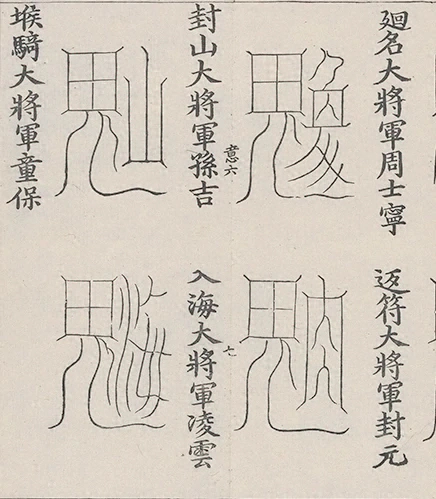 廻名大將軍周士寧
返符大將軍封元
意六
七
封山大將軍孫吉
入海大將軍凌雲
堠騎大將軍童保